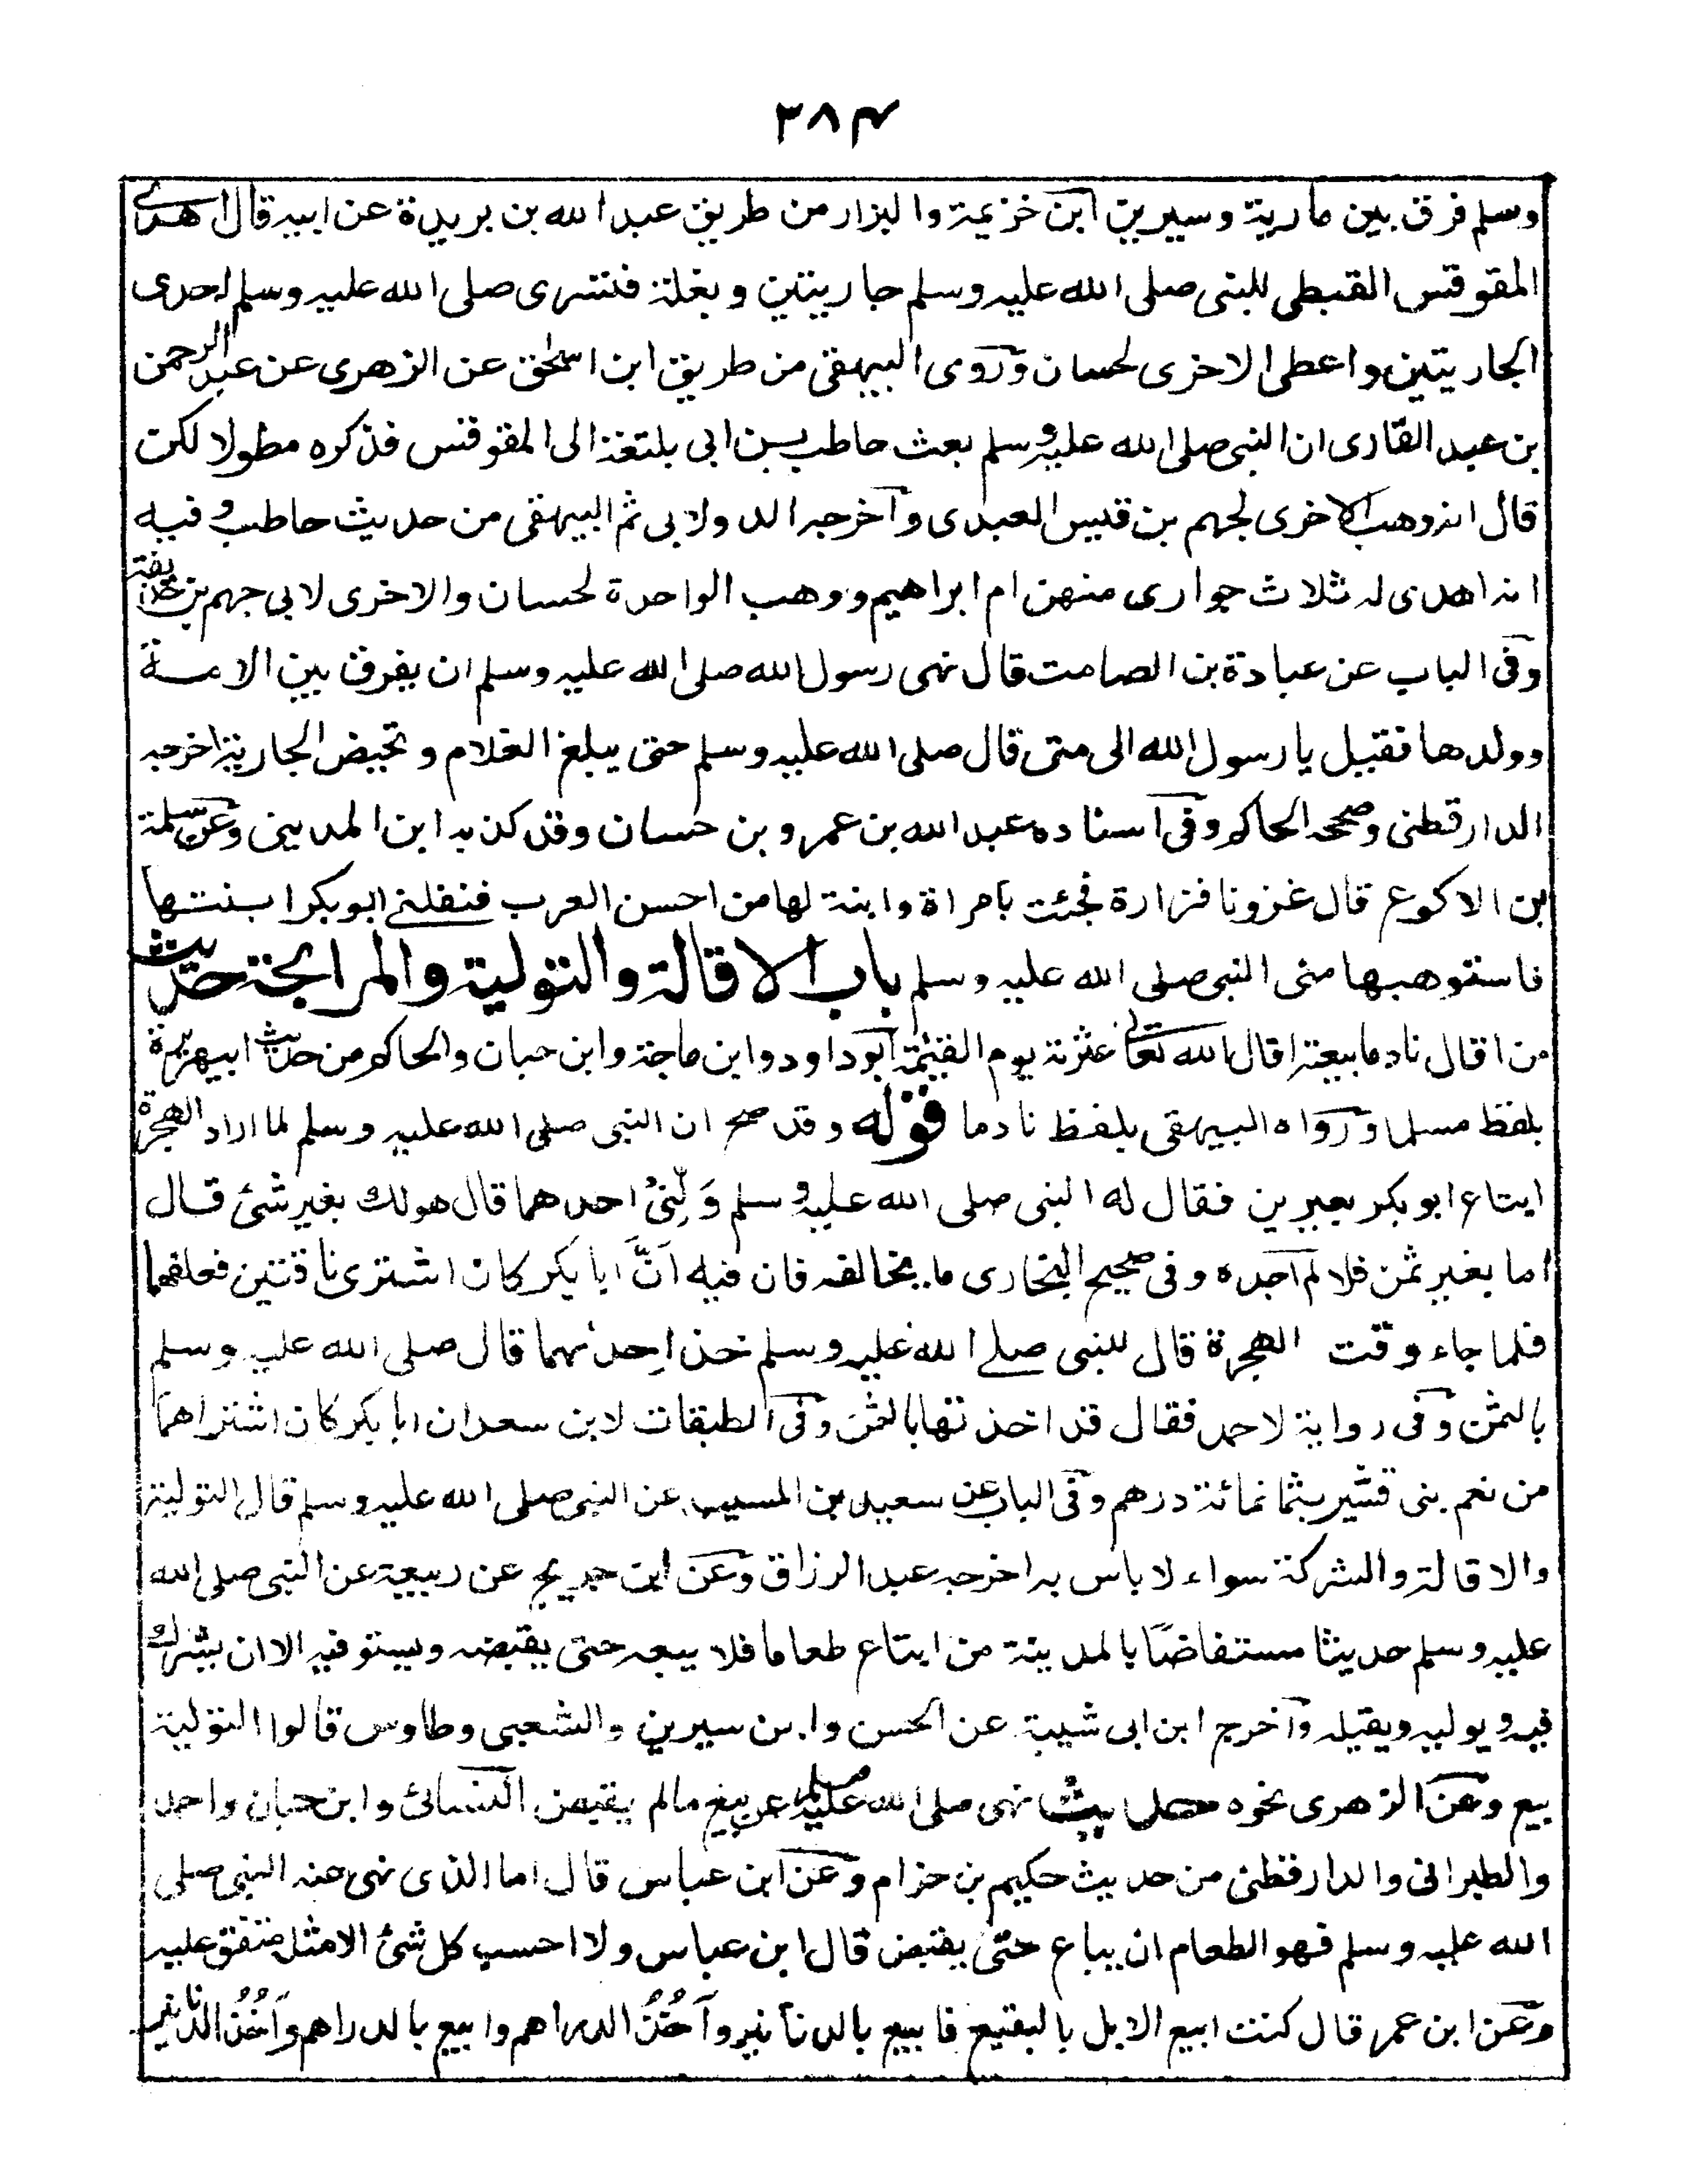 ٣٨٤
وسلم فرق بين مارية وسيرين ابن خزيمة والبزار من طريق عبد الله بن بريدة عن ابيه قال اهدى
المقوقس القبطى للنبى صلى الله عليه وسلم جاريتين وبغلة فتسرى صلى الله عليه وسلم احدى
الجاريتين واعطى الاخرى لحسان وروى البيهقى من طريق ابن اسحق عن الزهرى عن عبد الرحمن
بن عبد القارى ان النبى صلى الله عليه وسلم بعث حاطب بن ابى بلتعة الى المقوقس فذكره مطولا لكن
قال انه وهب الاخرى لجهم بن قيس العبدى وآخرجه الدولابى ثم البيهقى من حديث حاطب وفيه
انه اهدى له ثلاث جوارى منهن ام ابراهيم ووهب الواحدة لحسان والاخرى لابى جهم بن حذيفة
وفى الباب عن عبادة بن الصامت قال نهى رسول الله صلى الله عليه وسلم ان يفرق بين الامـة
وولدها فقيل يا رسول الله الى متى قال صلى الله عليه وسلم حتى يبلغ الغلام وتحيض الجارية اخرجه
الدارقطنى وصححه الحاكم وفى اسناده عبد الله بن عمرو بن حسان وقد كذبه ابن المدينى وعن سلمة
بن الاكوع قال غزونا فزارة فجئت بامراة وابنة لها من احسن العرب فنفلنى ابو بكر ابنتها
فاستوهبها منى النبى صلى الله عليه وسلم باب الاقالة والتولية والمرابحة حديث
من اقال نادما بيعته اقال الله تعالى عثرته يوم القيٰمة ابو داود وابن ماجة وابن حبان والحاكم من حديث ابى هريرة
بلفظ مسلما ورواه البيهقى بلفظ نادما قوله وقد صح ان النبى صلى الله عليه وسلم لما اراد الهجرة
ابتاع ابو بكر بعيرين فقال له النبى صلى الله عليه وسلم وَلِّنِىْ احدهما قال هو لك بغير شئ قال
اما بغير ثمن فلا لم آجده وفى صحيح البخارى ما يخالفه فان فيه اَنَّ ابا بكر كان اشترى ناقتين فعلفهما
فلما جاء وقت الهجرة قال للنبى صلى الله عليه وسلم خذ احدٰىهما قال صلى الله عليه وسلم
بالثمن وفى رواية لاحمد فقال قد اخذتها بالثمن وفى الطبقات لابن سعد ان ابا بكر كان اشتراهما
من نعم بنى قشير بثمانمائة درهم وفى الباب عن سعيد بن المسيب عن النبى صلى الله عليه وسلم قال التولية
والاقالة والشركة سواء لا باس به اخرجه عبد الرزاق وعن ابن جريج عن ربيعة عن النبى صلى الله
عليه وسلم حديثا مستفاضًا بالمدينة من ابتاع طعاما فلا يبعه حتى يقبضه ويستوفيه الا ان يشرك
فيه ويوليه ويقيله وآخرج ابن ابى شيبة عن الحسن وابن سيرين والشعبى وطاوس قالوا التولية
بيع وعن الزهرى نحوه حديث نهى صلى الله عليه وسلم عن بيع مالم يقبض النسائى وابن حبان واحمد
والطبرانى والدارقطنى من حديث حكيم بن حزام وعن ابن عباس قال اما الذى نهى عنه النبى صلى
الله عليه وسلم فهو الطعام ان يباع حتى يقبض قال ابن عباس ولا احسب كل شئ الا مثله متفق عليه
وعن ابن عمر قال كنت ابيع الابل بالبقيع فابيع بالدنانير وآخُذُ الدراهم وابيع بالدراهم وآخُذُ الدنانير